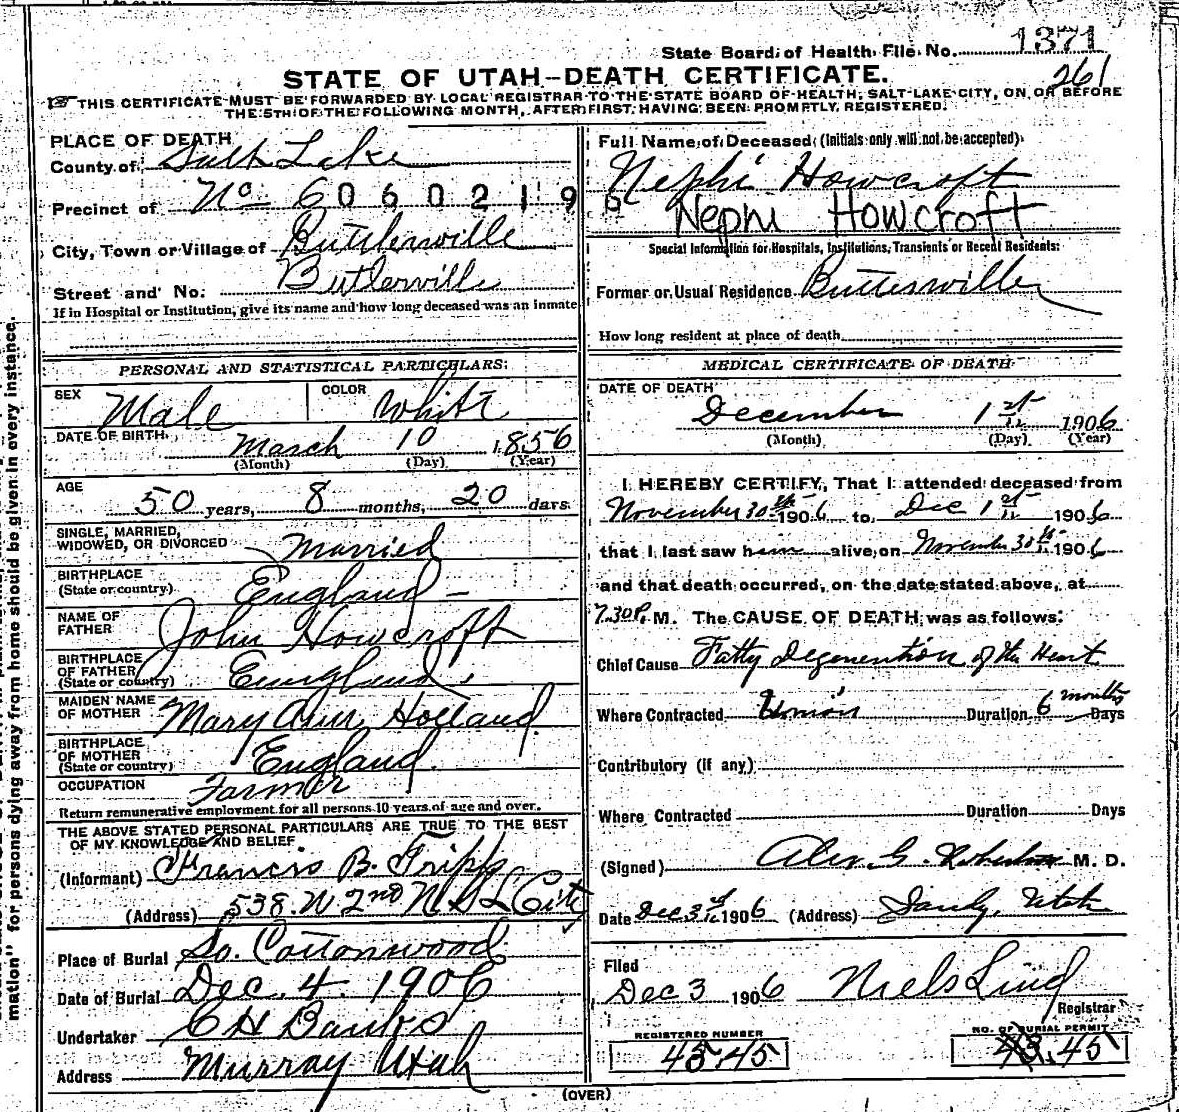 State Board of Health File No. 1371
261
STATE OF UTAH—DEATH CERTIFICATE.
THIS CERTIFICATE MUST BE FORWARDED BY LOCAL REGISTRAR TO THE STATE BOARD OF HEALTH, SALT LAKE CITY, ON OR BEFORE
THE 5TH OF THE FOLLOWING MONTH, AFTER FIRST HAVING BEEN PROMPTLY REGISTERED.
PLACE OF DEATH
County of Salt Lake
Precinct of No 6 0 6 0 2 1 9
City, Town or Village of Buttlerville
Street and No. Butlerville
If in Hospital or Institution, give its name and how long deceased was an inmate
PERSONAL AND STATISTICAL PARTICULARS:
SEX Male COLOR White
DATE OF BIRTH. March 10 1856
(Month) (Day) (Year)
AGE 50 years, 8 months, 20 days.
SINGLE, MARRIED,
WIDOWED, OR DIVORCED Married
BIRTHPLACE
(State or country) England
NAME OF
FATHER John Howcroft
BIRTHPLACE
OF FATHER
(State or country) England
MAIDEN NAME
OF MOTHER Mary Ann Holland
BIRTHPLACE
OF MOTHER
(State or country) England
OCCUPATION Farmer
Return remunerative employment for all persons 10 years of age and over.
THE ABOVE STATED PERSONAL PARTICULARS ARE TRUE TO THE BEST
OF MY KNOWLEDGE AND BELIEF
(Informant) Francis B. Tripp
(Address) 538 W 2nd N S L City
Place of Burial So. Cottonwood
Date of Burial Dec. 4. 1906
Undertaker C H Banks
Address Murray Utah
Full Name of Deceased (Initials only will not be accepted)
Nephi Howcroft
Nephi Howcroft
Special Information for Hospitals, Institutions, Transients or Recent Residents:
Former or Usual Residence Butlersville
How long resident at place of death
MEDICAL CERTIFICATE OF DEATH
DATE OF DEATH
December 1st 1906
(Month) (Day) (Year)
I HEREBY CERTIFY, That I attended deceased from
November 30th 1906 to Dec 1st 1906
that I last saw him alive on November 30th 1906
and that death occurred, on the date stated above, at
7.30 P. M. The CAUSE OF DEATH was as follows:
Chief Cause Fatty Degeneration of the Heart
Where Contracted Union Duration 6 months Days
Contributory (if any)
Where Contracted Duration Days
(Signed) Alex. G. M. D.
Date Dec 3rd 1906 (Address) Sandy, Utah
Filed
Dec 3 1906 Niels Lind
Registrar
REGISTERED NUMBER
45 45
NO. OF BURIAL PERMIT
43. 45
(OVER)
mation" for persons dying away from home should be given in every instance.